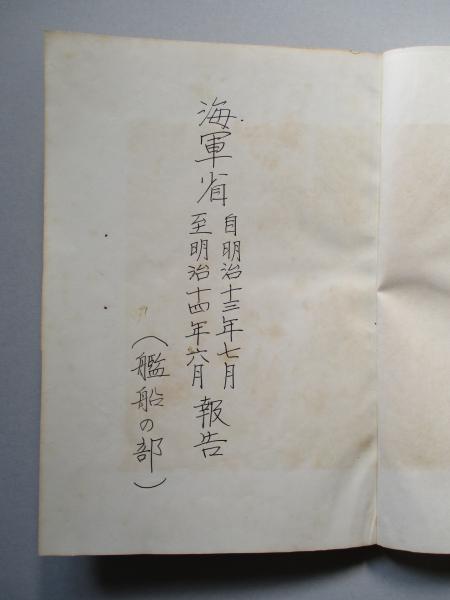 海軍省
自明治十三年七月
至明治十四年六月
報告
（艦船の部）